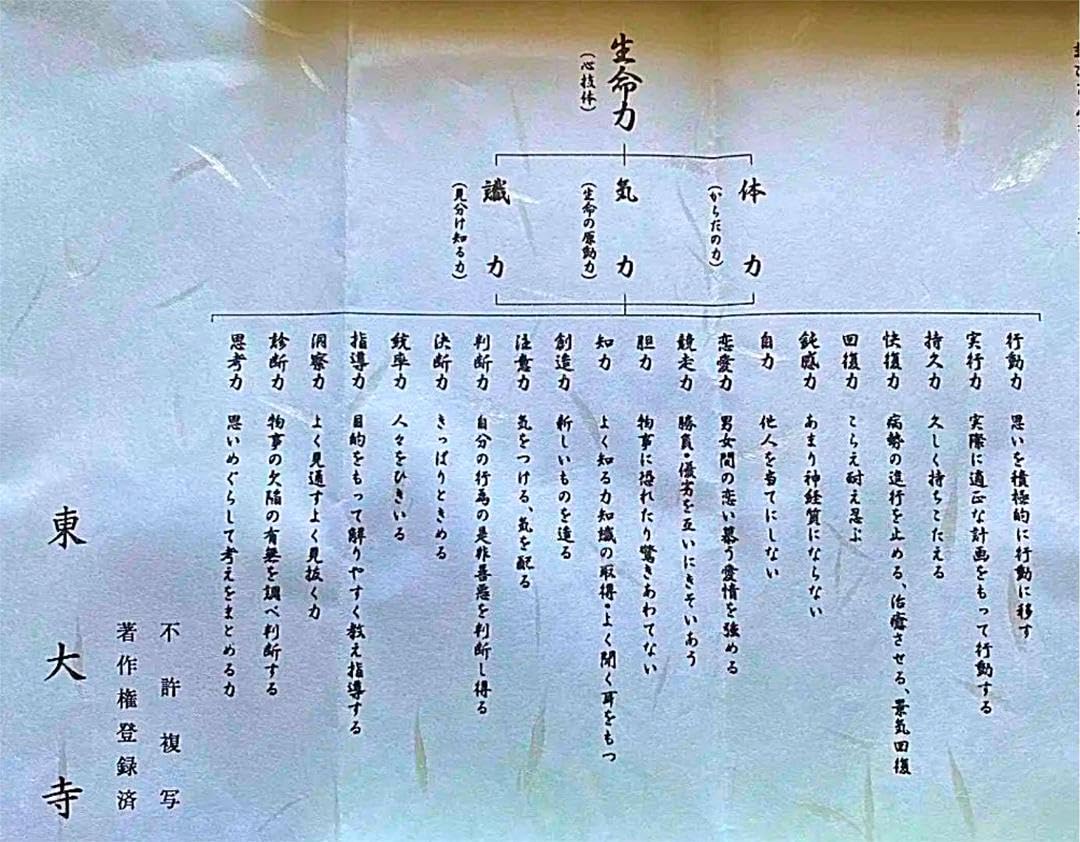 生命力
(心技体)
体力
(からだの力)
気力
(生命の原動力)
識力
(見分け知る力)
行動力 思いを積極的に行動に移す
実行力 実際に適正な計画をもって行動する
持久力 久しく持ちこたえる
快復力 病勢の進行を止める、治癒させる、景気回復
回復力 こらえ耐え忍ぶ
鈍感力 あまり神経質にならない
自力 他人を当てにしない
恋愛力 男女間の恋い慕う愛情を強める
競走力 勝負・優劣を互いにきそいあう
胆力 物事に恐れたり驚きあわてない
知力 よく知る力知識の取得・よく聞く耳をもつ
創造力 新しいものを造る
注意力 気をつける、気を配る
判断力 自分の行為の是非善悪を判断し得る
決断力 きっぱりときめる
統率力 人々をひきいる
指導力 目的をもって解りやすく教え指導する
洞察力 よく見通すよく見抜く力
診断力 物事の欠陥の有無を調べ判断する
思考力 思いめぐらして考えをまとめる力
不許複写
著作権登録済
東大寺